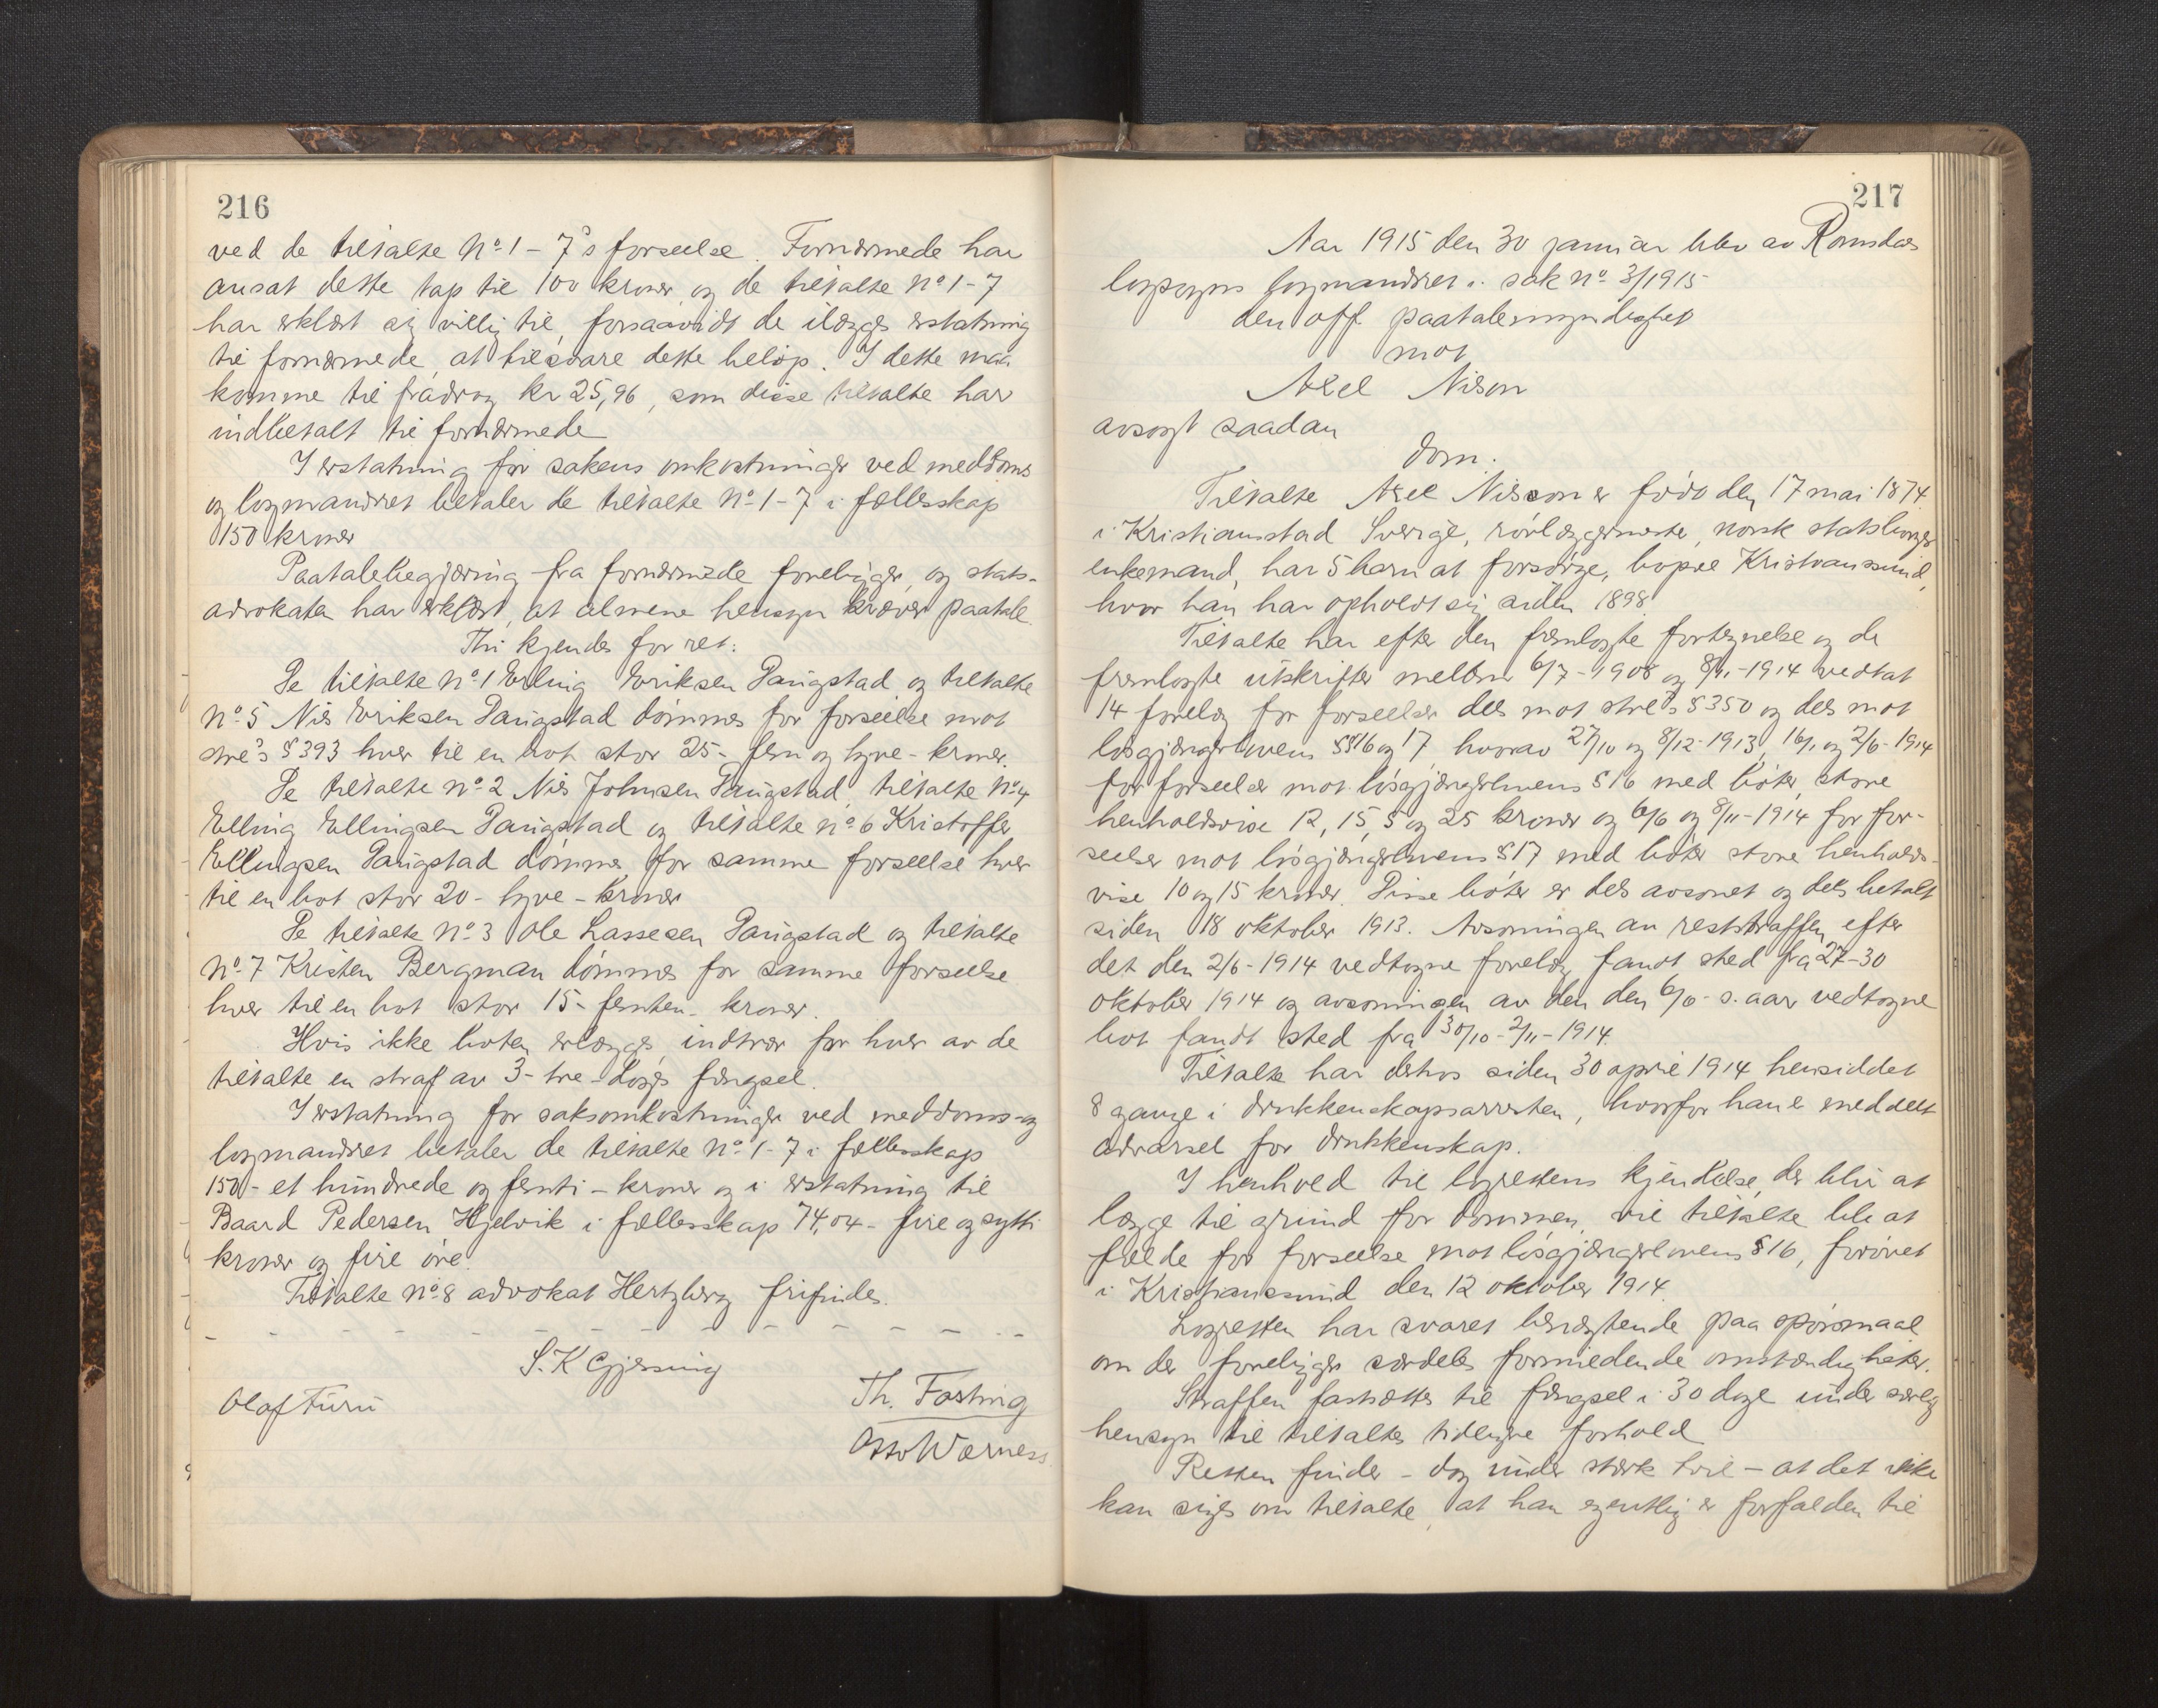 216
ved de tiltalte No 1 - 7's forseelse. Fornærmede har
ansat dette tap til 100 kroner og de tiltalte No 1-7
har erklært sig villig til, forsaavidt de ilægges erstatning
til fornærmede, at tilsvare dette beløp. I dette maa
komme til fradrag kr 25,96, som disse tiltalte har
indbetalt til fornærmede
I erstatning for sakens omkostninger ved meddoms
og lagmandsret betaler de tiltalte No 1-7 i fællesskap
150 kroner
Paatalebegjæring fra fornærmede foreligger og stats-
advokaten har erklært, at almene hensyn kræver paatale.
Thi kjendes for ret:
De tiltalte No 1 Erling Eriksen Paugstad og tiltalte
No 5 Nils Eriksen Paugstad dømmes for forseelse mot
strl's § 393 hver til en bot stor 25 - fem og tyve - kroner.
De tiltalte No 2 Nils Johnsen Paugstad, tiltalte No 4
Elling Ellingsen Paugstad og tiltalte No 6 Kristoffer
Ellingsen Paugstad dømmes for samme forseelse hver
til en bot stor 20 - tyve - kroner
De tiltalte No 3 Ole Lassesen Paugstad og tiltalte
No 7 Kristen Bergman dømmes for samme forseelse
hver til en bot stor 15 - femten - kroner.
Hvis ikke boten erlægges, indtrær for hver av de
tiltalte en straf av 3 - tre - dages fængsel.
I erstatning for saksomkostninger ved meddoms- og
lagmandsret betaler de tiltalte No 1-7 i fællesskap
150 - et hundrede og femti - kroner og i erstatning til
Baard Pedersen Hjelvik i fællesskap 74,04 - fire og sytti
kroner og fire øre.
Tiltalte No 8 advokat Hertzberg frifindes.
S. K Gjessing
Olaf Furu
Th. Fasting
Otto Werness
217
Aar 1915 den 30 januar blev av Romsdals
lagsogns lagmandsret i sak No 3/1915
den off. paatalemyndighet
mot
Axel Nilson
avsagt saadan
dom.
Tiltalte Axel Nilsson er født den 17 mai 1874
i Kristianstad Sverige, rørlæggermester, norsk statsborger
enkemand, har 5 barn at forsørge, bopæl Kristiansund,
hvor han har opholdt sig siden 1898.
Tiltalte har efter den fremlagte fortegnelse og de
fremlagte utskrifter mellem 6/7-1908 og 8/11-1914 vedtat
14 forelæg for forseelser dels mot strl's § 350 og dels mot
løsgjængerlovens §§ 16 og 17 hvorav 27/10 og 8/12-1913, 16/1 og 2/6-1914
for forseelse mot løsgjængerlovens § 16 med bøter, store
henholdsvis 12, 15, 5 og 25 kroner og 6/6 og 8/11-1914 for for-
seelser mot løsgjængerlovens § 17 med bøter store henholds-
vise 10 og 15 kroner. Disse bøter er dels avsonet og dels betalt
siden 18 oktober 1913. Avsoningen av reststraffen efter
det den 2/6-1914 vedtagne forelæg fandt sted fra 27-30
oktober 1914 og avsoningen av den den 6/6 - s. aar vedtagne
bot fandt sted fra 30/10-2/11-1914.
Tiltalte har dertil siden 30 april 1914 hensiddet
8 gange i drukkenskapsarresten, hvorfor han er meddelt
advarsel for drukkenskap.
I henhold til lagrettens kjendelse, der blir at
lægge til grund for dommen, vil tiltalte bli at
fælde for forseelse mot løsgjængerlovens § 16, forøvet
i Kristiansund den 12 oktober 1914.
Lagretten har svaret benegtende paa spørsmaal
om der foreligger særdeles formildende omstændigheter.
Straffen fastsættes til fængsel i 30 dage under særlig
hensyn til tiltaltes tidligere forhold
Retten finder - dog under sterk tvil - at det ikke
kan siges om tiltalte, at han egentlig er forfalden til